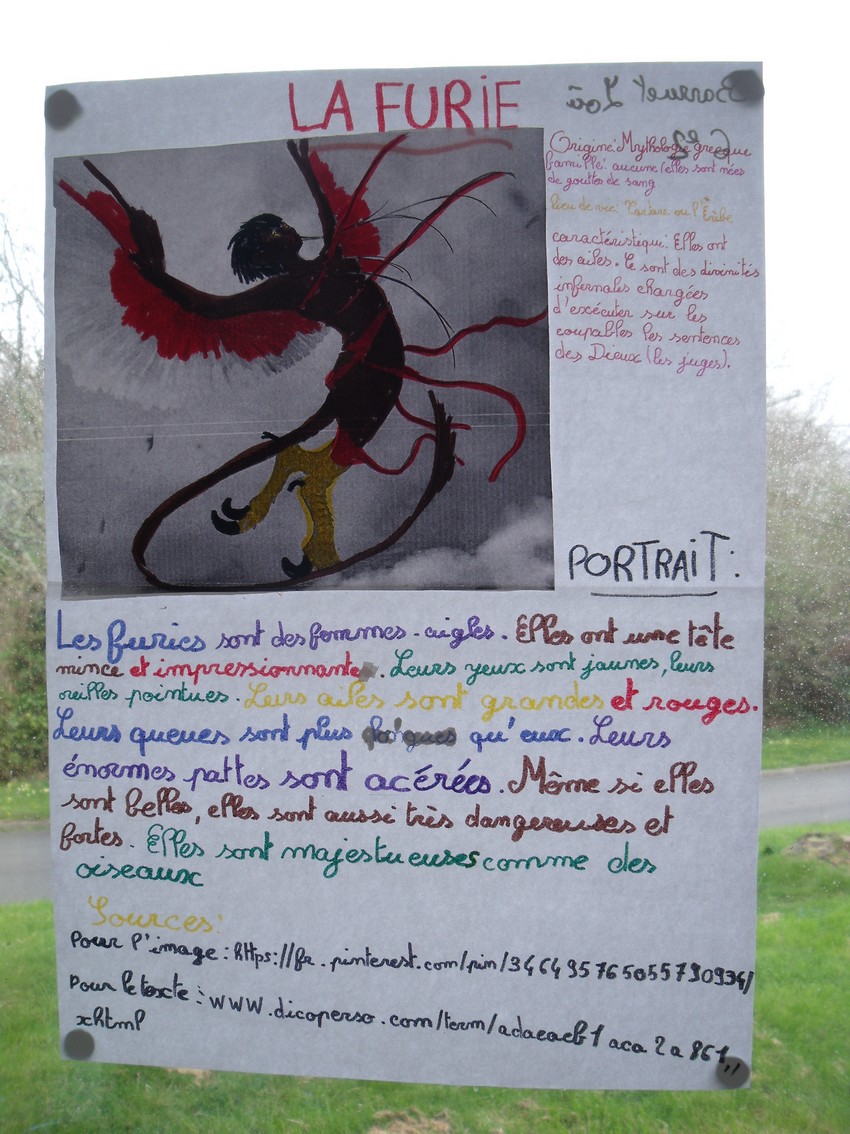 LA FURIE
Barruet Zoë
6e2
Origine: Mythologie grecque
famille: aucune (elles sont nées
de gouttes de sang
lieu de vie: Tartare ou l'Érèbe
caractéristique: Elles ont
des ailes. Ce sont des divinités
infernales chargées
d'exécuter sur les
coupables les sentences
des Dieux (les juges).
PORTRAIT:
Les furies sont des femmes-aigles. Elles ont une tête
mince et impressionnante. Leurs yeux sont jaunes, leurs
oreilles pointues. Leurs ailes sont grandes et rouges.
Leurs queues sont plus longues qu'eux. Leurs
énormes pattes sont acérées. Même si elles
sont belles, elles sont aussi très dangereuses et
fortes. Elles sont majestueuses comme des
oiseaux
Sources:
Pour l'image: https://fr.pinterest.com/pin/346495765055790934/
Pour le texte: www.dicoperso.com/term/adaeaeb1aca2a861,,
xhtml